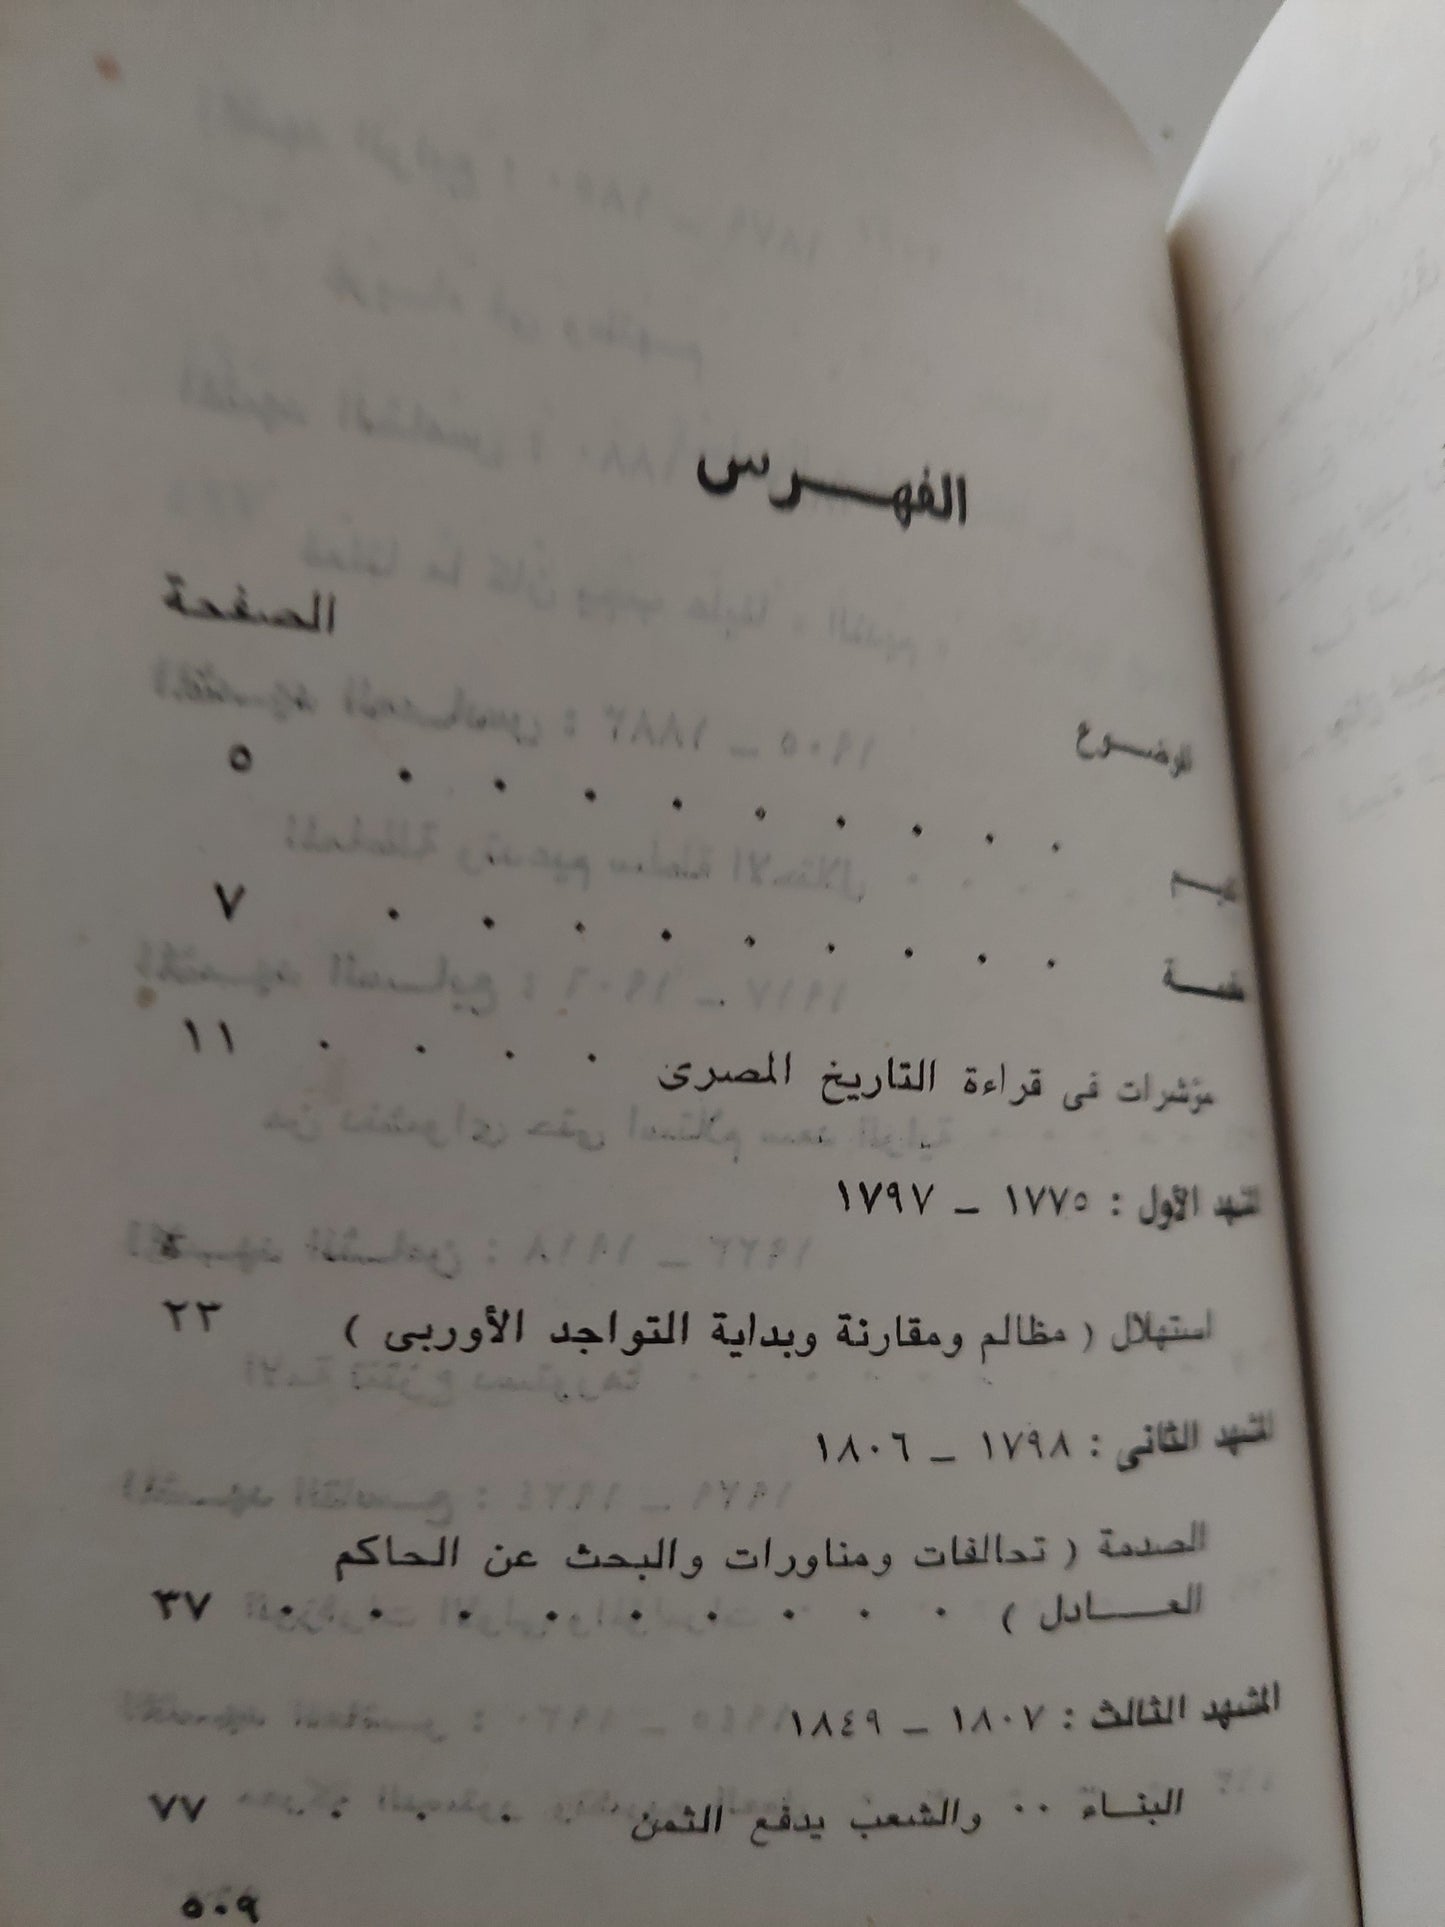 الفهرس
الصفحة
الموضوع
٥
٧
مؤشرات فى قراءة التاريخ المصرى . . . . ١١
المشهد الأول : ١٧٧٥ - ١٧٩٧
استهلال ( مظالم ومقارنة وبداية التواجد الأوربى ) ٢٣
المشهد الثانى : ١٧٩٨ - ١٨٠٦
الصدمة ( تحالفات ومناورات والبحث عن الحاكم
العادل ) . . . . . . . . . ٣٧
المشهد الثالث : ١٨٠٧ - ١٨٤٩
البناء .. والشعب يدفع الثمن . . . ٧٧
٥٠٩